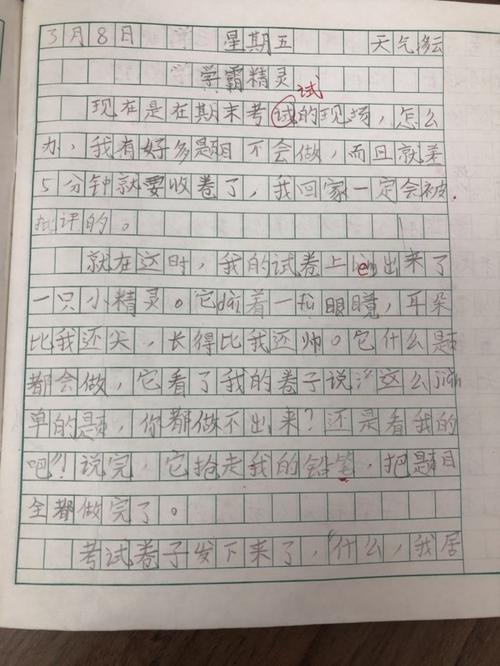 3月8日 星期五 天气多云
学霸精灵
试
现在是在期末考试的现场，怎么
办，我有好多题目不会做，而且就差
5分钟就要收卷了，我回家一定会被
批评的。
就在这时，我的试卷上 出来了
一只小精灵。它dai着一fu眼睛，耳朵
比我还尖，长得比我还帅。它什么题
都会做，它看了我的卷子说："这么jian
单的题，你都做不出来？还是看我的
吧"！说完，它抢走我的铅笔，把题目
全都做完了。
考试卷子发下来了，"什么，我居